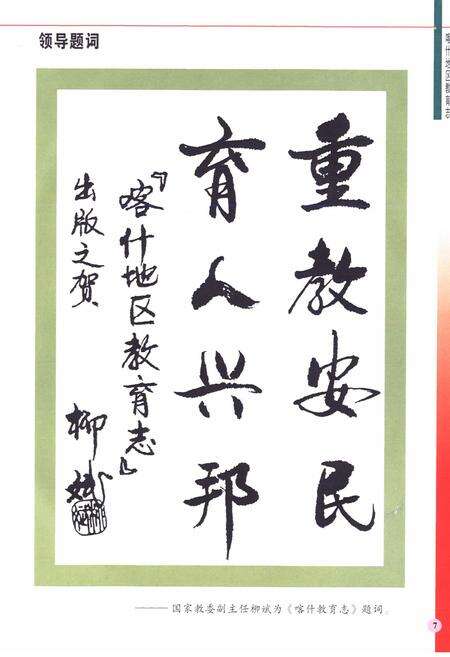 领导题词
喀什地区教育志
重教安民
育人兴邦
《喀什地区教育志》
出版之贺
柳斌
——— 国家教委副主任柳斌为《喀什教育志》题词。
7